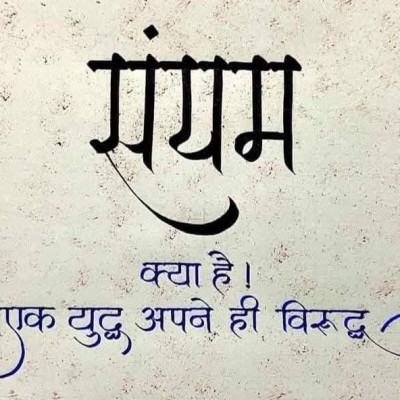 संयम
क्या है!
एक युद्ध अपने ही विरूद्ध